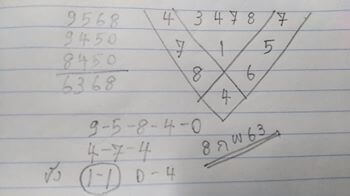 9568
9450
8450
6368
4 3 4 7 8 7
7 1 5
8 6
4
9-5-8-4-0
4-7-4
8 ก พ 63
วิ่ง 1-1 0-4